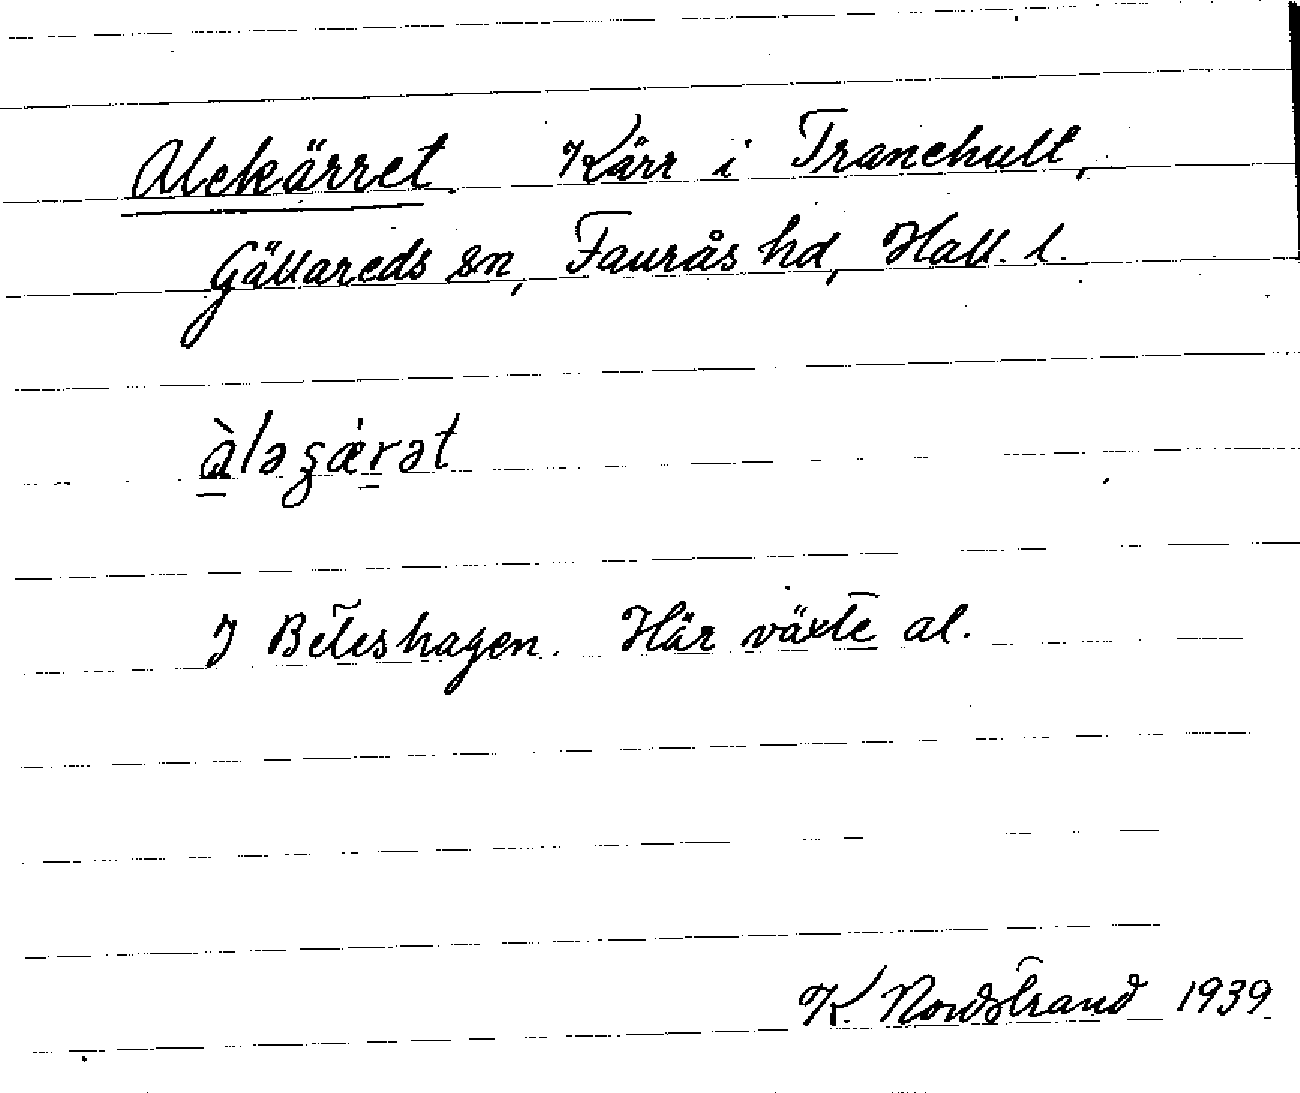 Alekärret. Kärr i Tranehult,
Gällareds sn, Faurås hd, Hall. l.
àləʂǽrət
I Beteshagen. Här växte al.
K. Nordstrand 1939